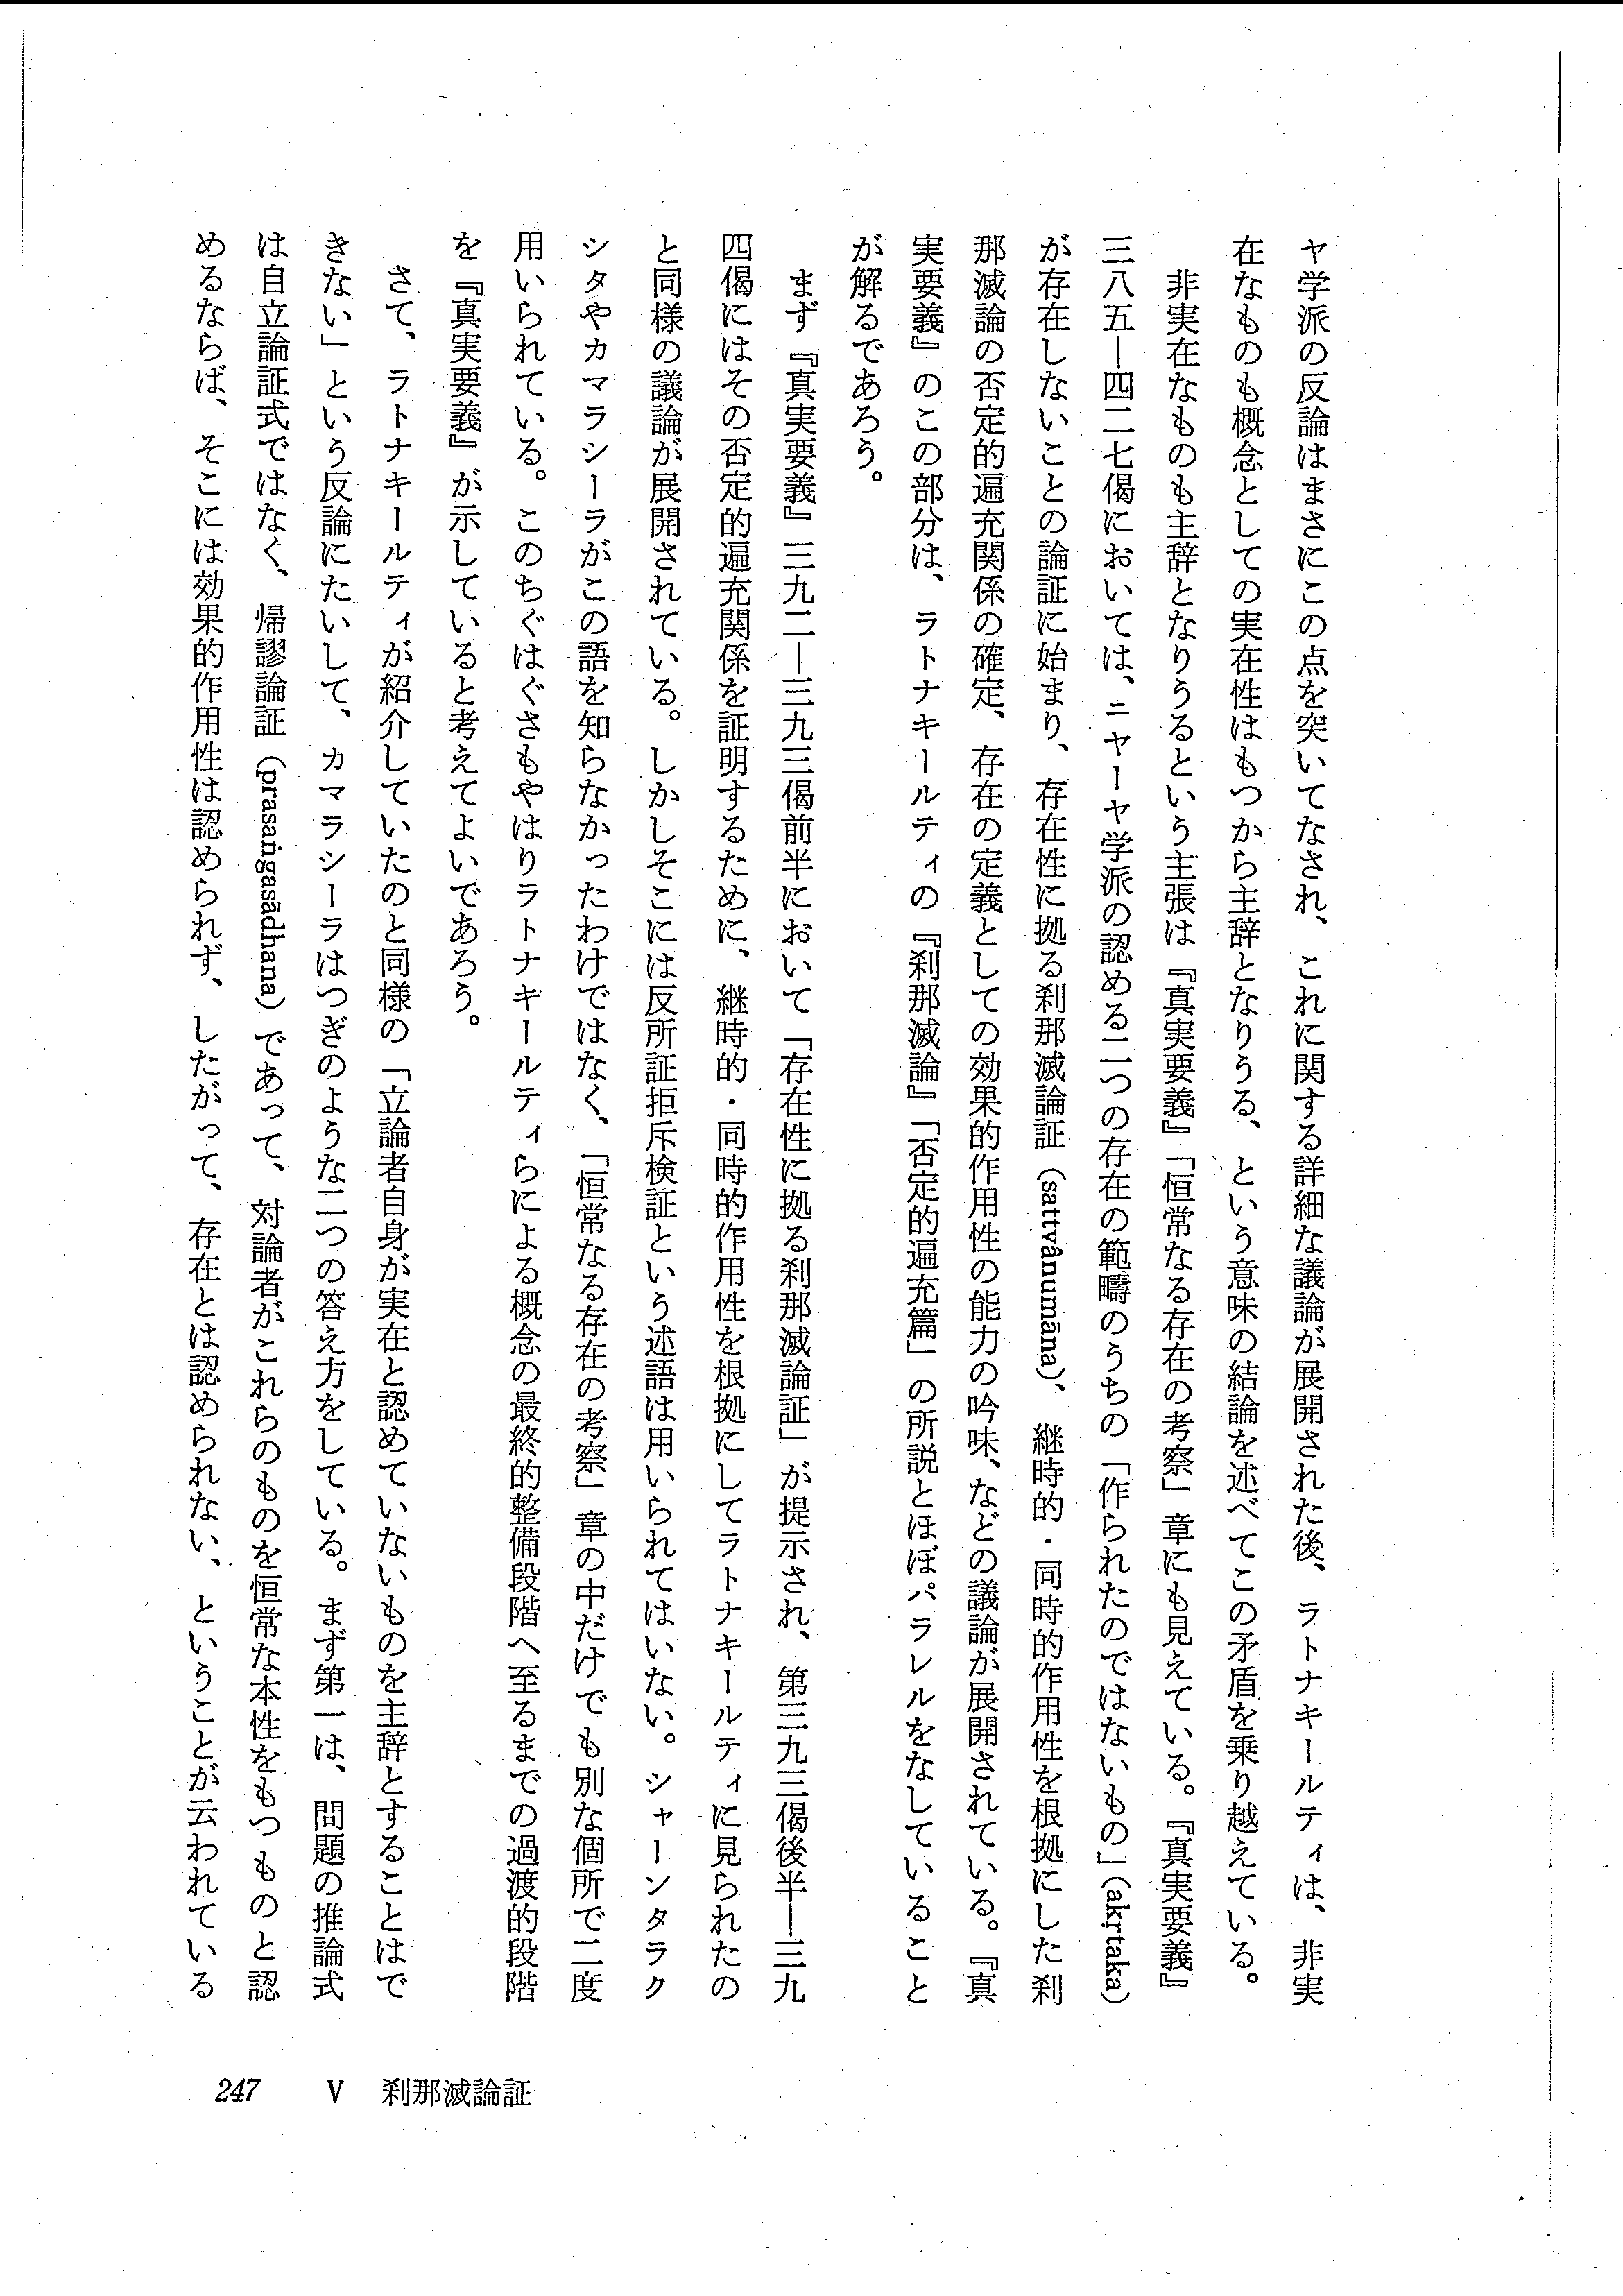 ヤ学派の反論はまさにこの点を突いてなされ、これに関する詳細な議論が展開された後、ラトナキールティは、非実
在なものも概念としての実在性はもつから主辞となりうる、という意味の結論を述べてこの矛盾を乗り越えている。
非実在なものも主辞となりうるという主張は『真実要義』「恒常なる存在の考察」章にも見えている。『真実要義』
三八五―四二七偈においては、ニヤーヤ学派の認める二つの存在の範疇のうちの「作られたのではないもの」（akṛtaka）
が存在しないことの論証に始まり、存在性に拠る刹那滅論証（sattvânumāna）、継時的・同時的作用性を根拠にした刹
那滅論の否定的遍充関係の確定、存在の定義としての効果的作用性の能力の吟味、などの議論が展開されている。『真
実要義』のこの部分は、ラトナキールティの『刹那滅論』「否定的遍充篇」の所説とほぼパラレルをなしていること
が解るであろう。
まず『真実要義』三九二―三九三偈前半において「存在性に拠る刹那滅論証」が提示され、第三九三偈後半―三九
四偈にはその否定的遍充関係を証明するために、継時的・同時的作用性を根拠にしてラトナキールティに見られたの
と同様の議論が展開されている。しかしそこには反所証拒斥検証という述語は用いられてはいない。シャーンタラク
シタやカマラシーラがこの語を知らなかったわけではなく、「恒常なる存在の考察」章の中だけでも別な個所で二度
用いられている。このちぐはぐさもやはりラトナキールティらによる概念の最終的整備段階へ至るまでの過渡的段階
を『真実要義』が示していると考えてよいであろう。
さて、ラトナキールティが紹介していたのと同様の「立論者自身が実在と認めていないものを主辞とすることはで
きない」という反論にたいして、カマラシーラはつぎのような二つの答え方をしている。まず第一は、問題の推論式
は自立論証式ではなく、帰謬論証（prasaṅgasādhana）であって、対論者がこれらのものを恒常な本性をもつものと認
めるならば、そこには効果的作用性は認められず、したがって、存在とは認められない、ということが云われている
247 V 刹那滅論証